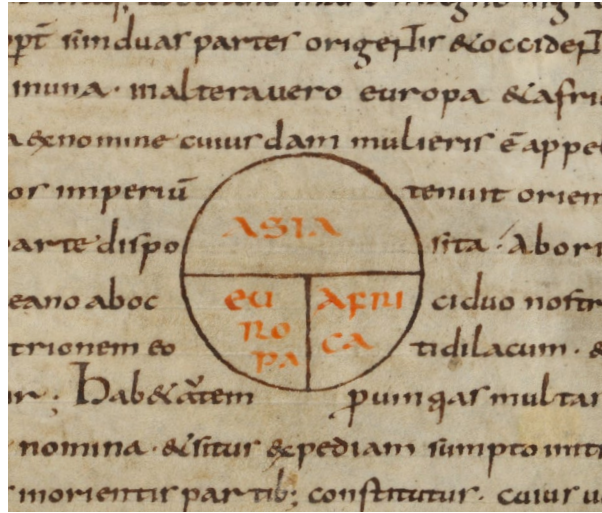 ppt sunduas partes origentis & occident
muna · inalterauero europa & afri
a exnomine cuiusdam mulieris ē appe
or imperiū tenuit orien
ASIA
parte dispo sita · Abori
eano aboc EU AFRI ciduo nostr
RO
trionem eo PA CA tidilacum · &
ur · Hab& autem pumqas multas
nomina · & situr & pediam sumpto initi
morientis partib; constitutur · cuius u